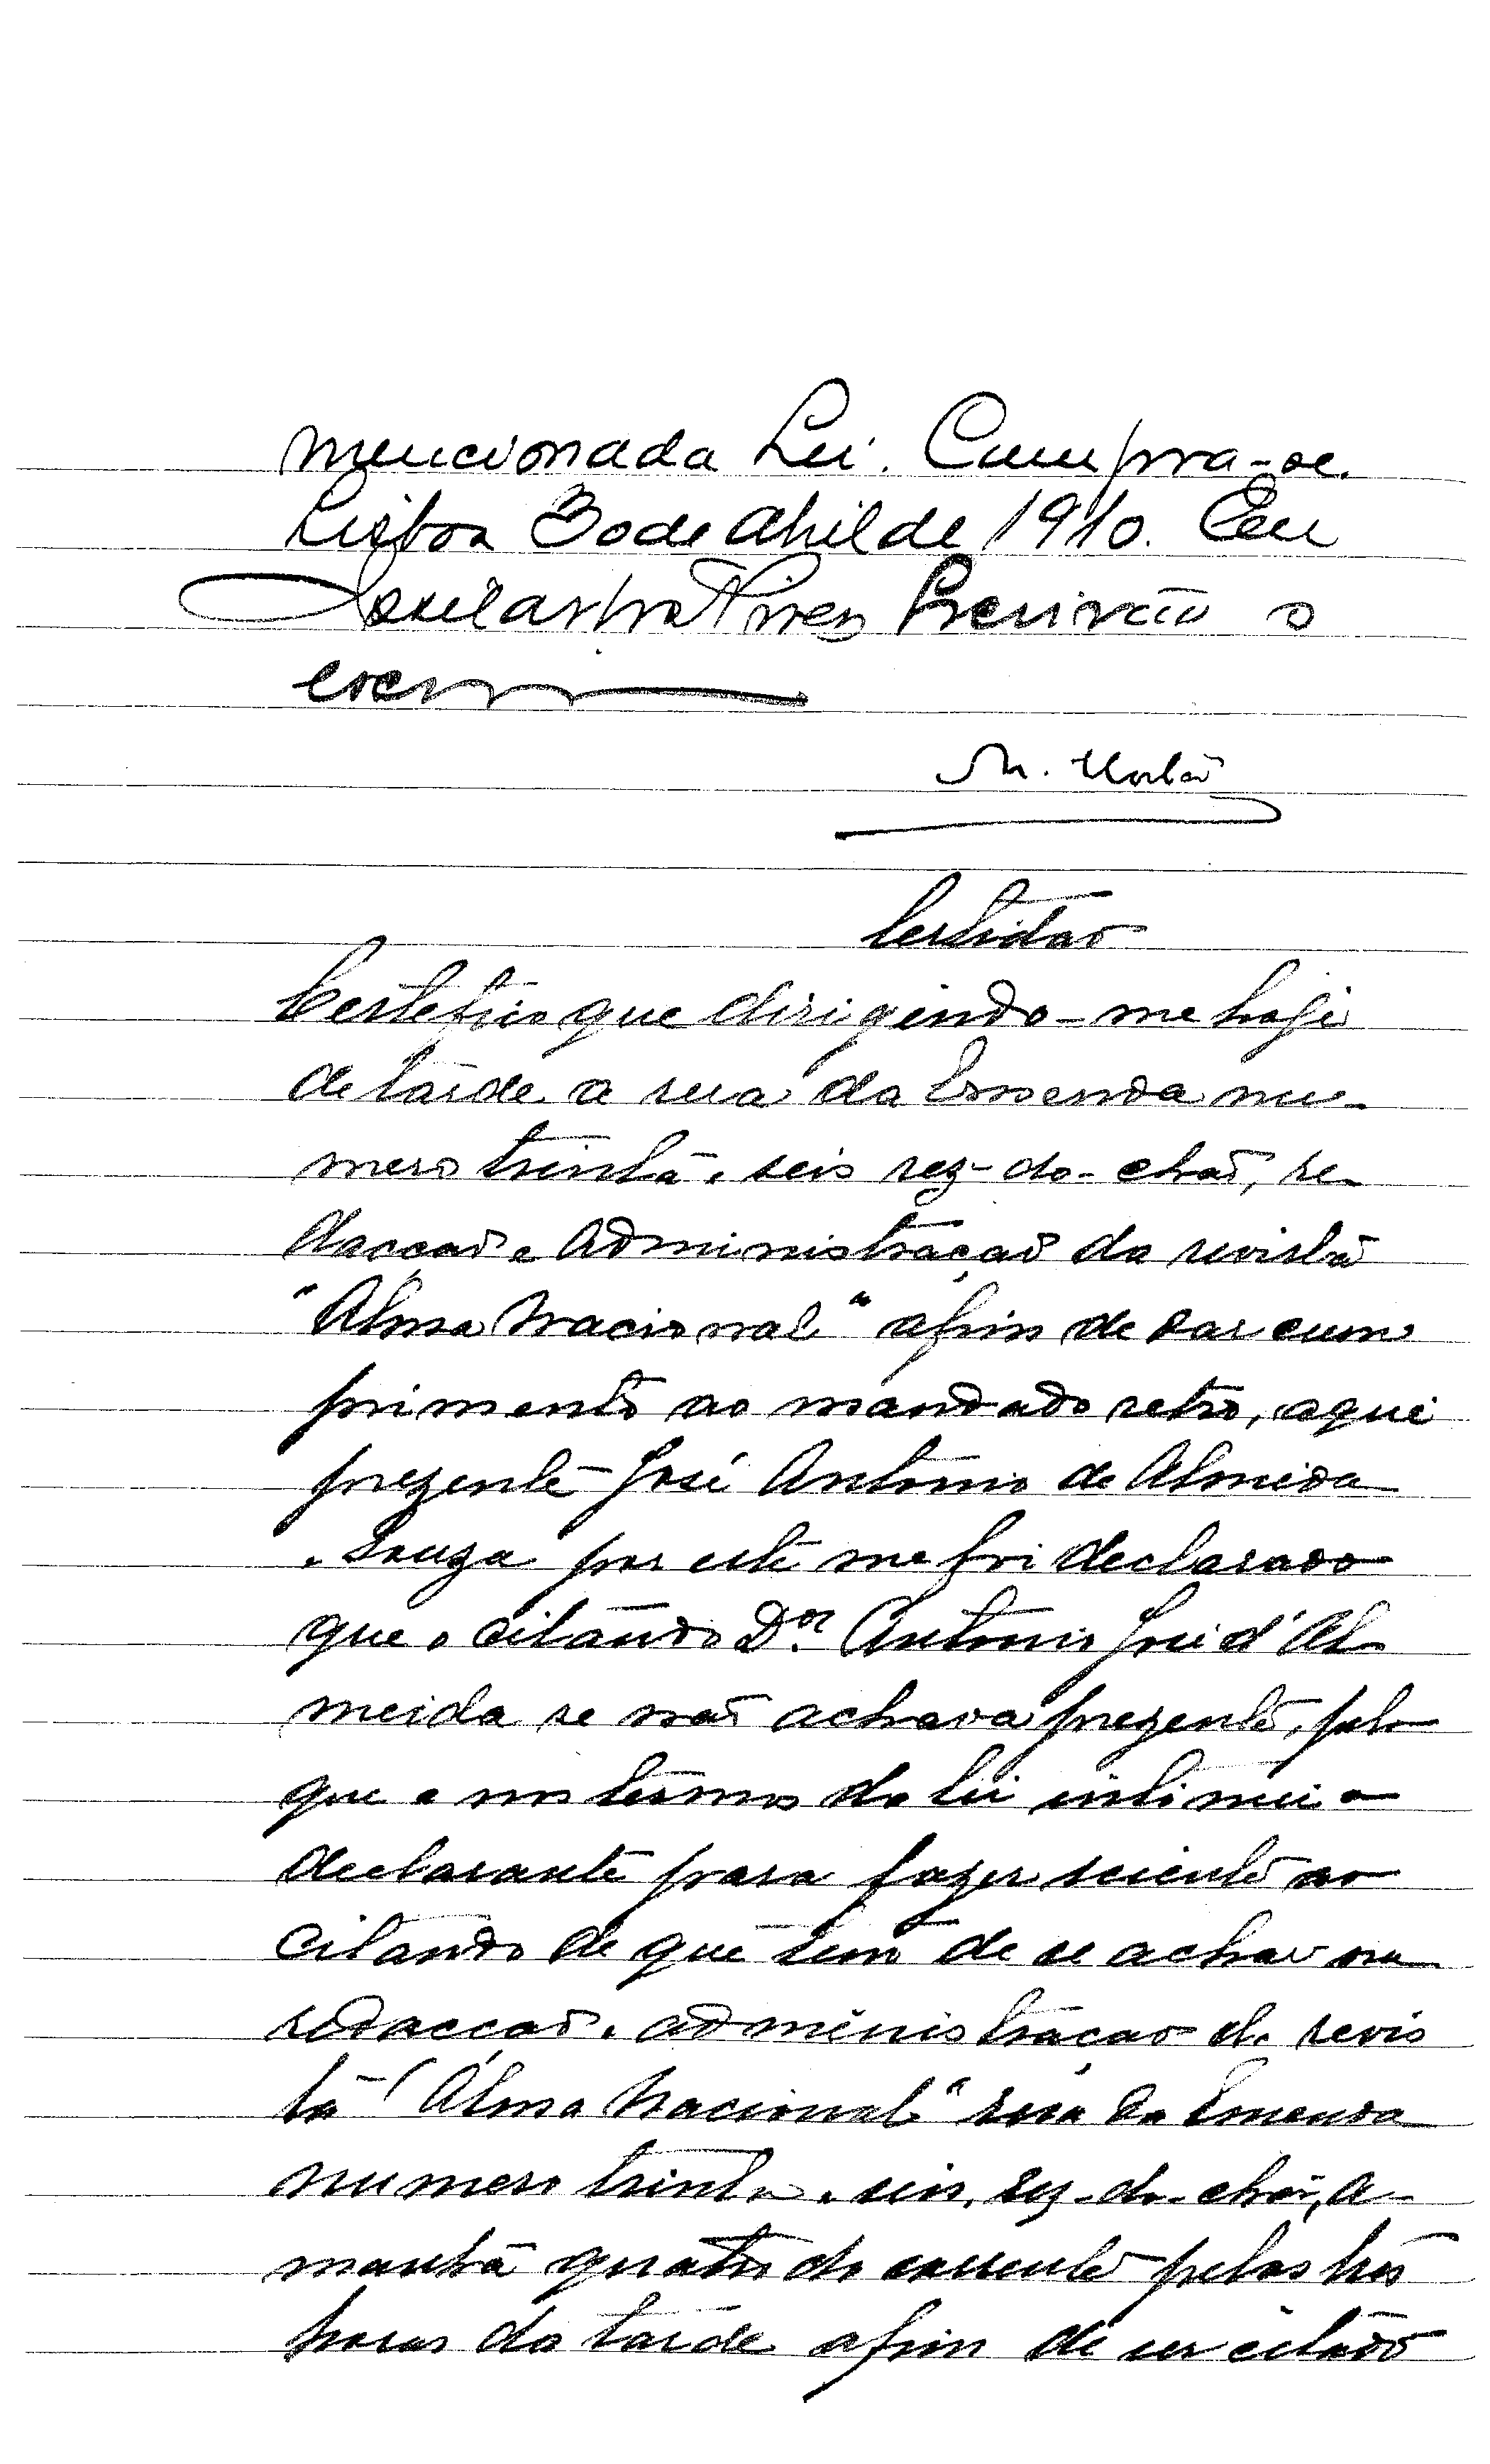 mencionada Lei. Cumpra-se.
Lisboa 30 de Abril de 1910. Eu
Pires Escrivão o
escrevi
M.
Certidão
Certefico que dirigindo-me hoje
de tarde a rua da Emenda nu-
mero trinta e seis rez-do-chaõ, re-
dacçaõ e administraçaõ da revista
"Alma Nacional" afim de dar cum
primento ao mandado retro, aqui
prezente José Antonio de Almeida
e Souza por este me foi declarado
que o citando Dor. Antonio José d'Al-
meida se naõ achava prezente, pelo
que e nos termos da lei intimei o
declarante para fazer sciente ao
citando de que tem de se achar na
redacçaõ e administraçao da revis
ta "Alma Nacional" rua da Emenda
numero trinta e seis, rez-do-chaõ, a-
manhã quatro do corrente pelas tres
horas da tarde afim de ser citado